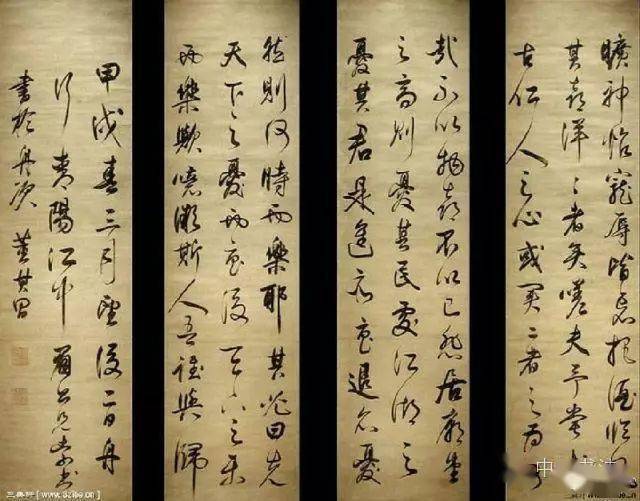 曠神怡寵辱皆忘把酒臨
其喜洋〻者矣嗟夫予嘗求
古仁人之心或異二者之為
哉不以物喜不以己悲居廟堂
之高則憂其民處江湖之
憂其君是進亦憂退亦憂
然則何時而樂耶其必曰先
天下之憂而憂後天下之樂
而樂歟噫微斯人吾誰與歸
甲戌春三月望後二日舟
行青陽江中
書於舟次 董其昌